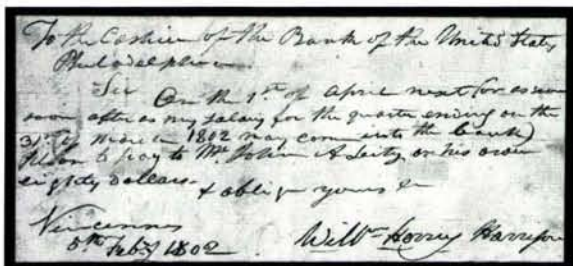 To the Cashier of the Bank of the United States
Philadelphia.
Sir On the 1st of April next (or as soon
after as my salary for the quarter ending on the
31st 1802 may come into the bank)
Please to pay to Mr. John or his order
eighty dollars. & oblige yours &c
Vincennes
5th Feby 1802 Willm Henry Harrison